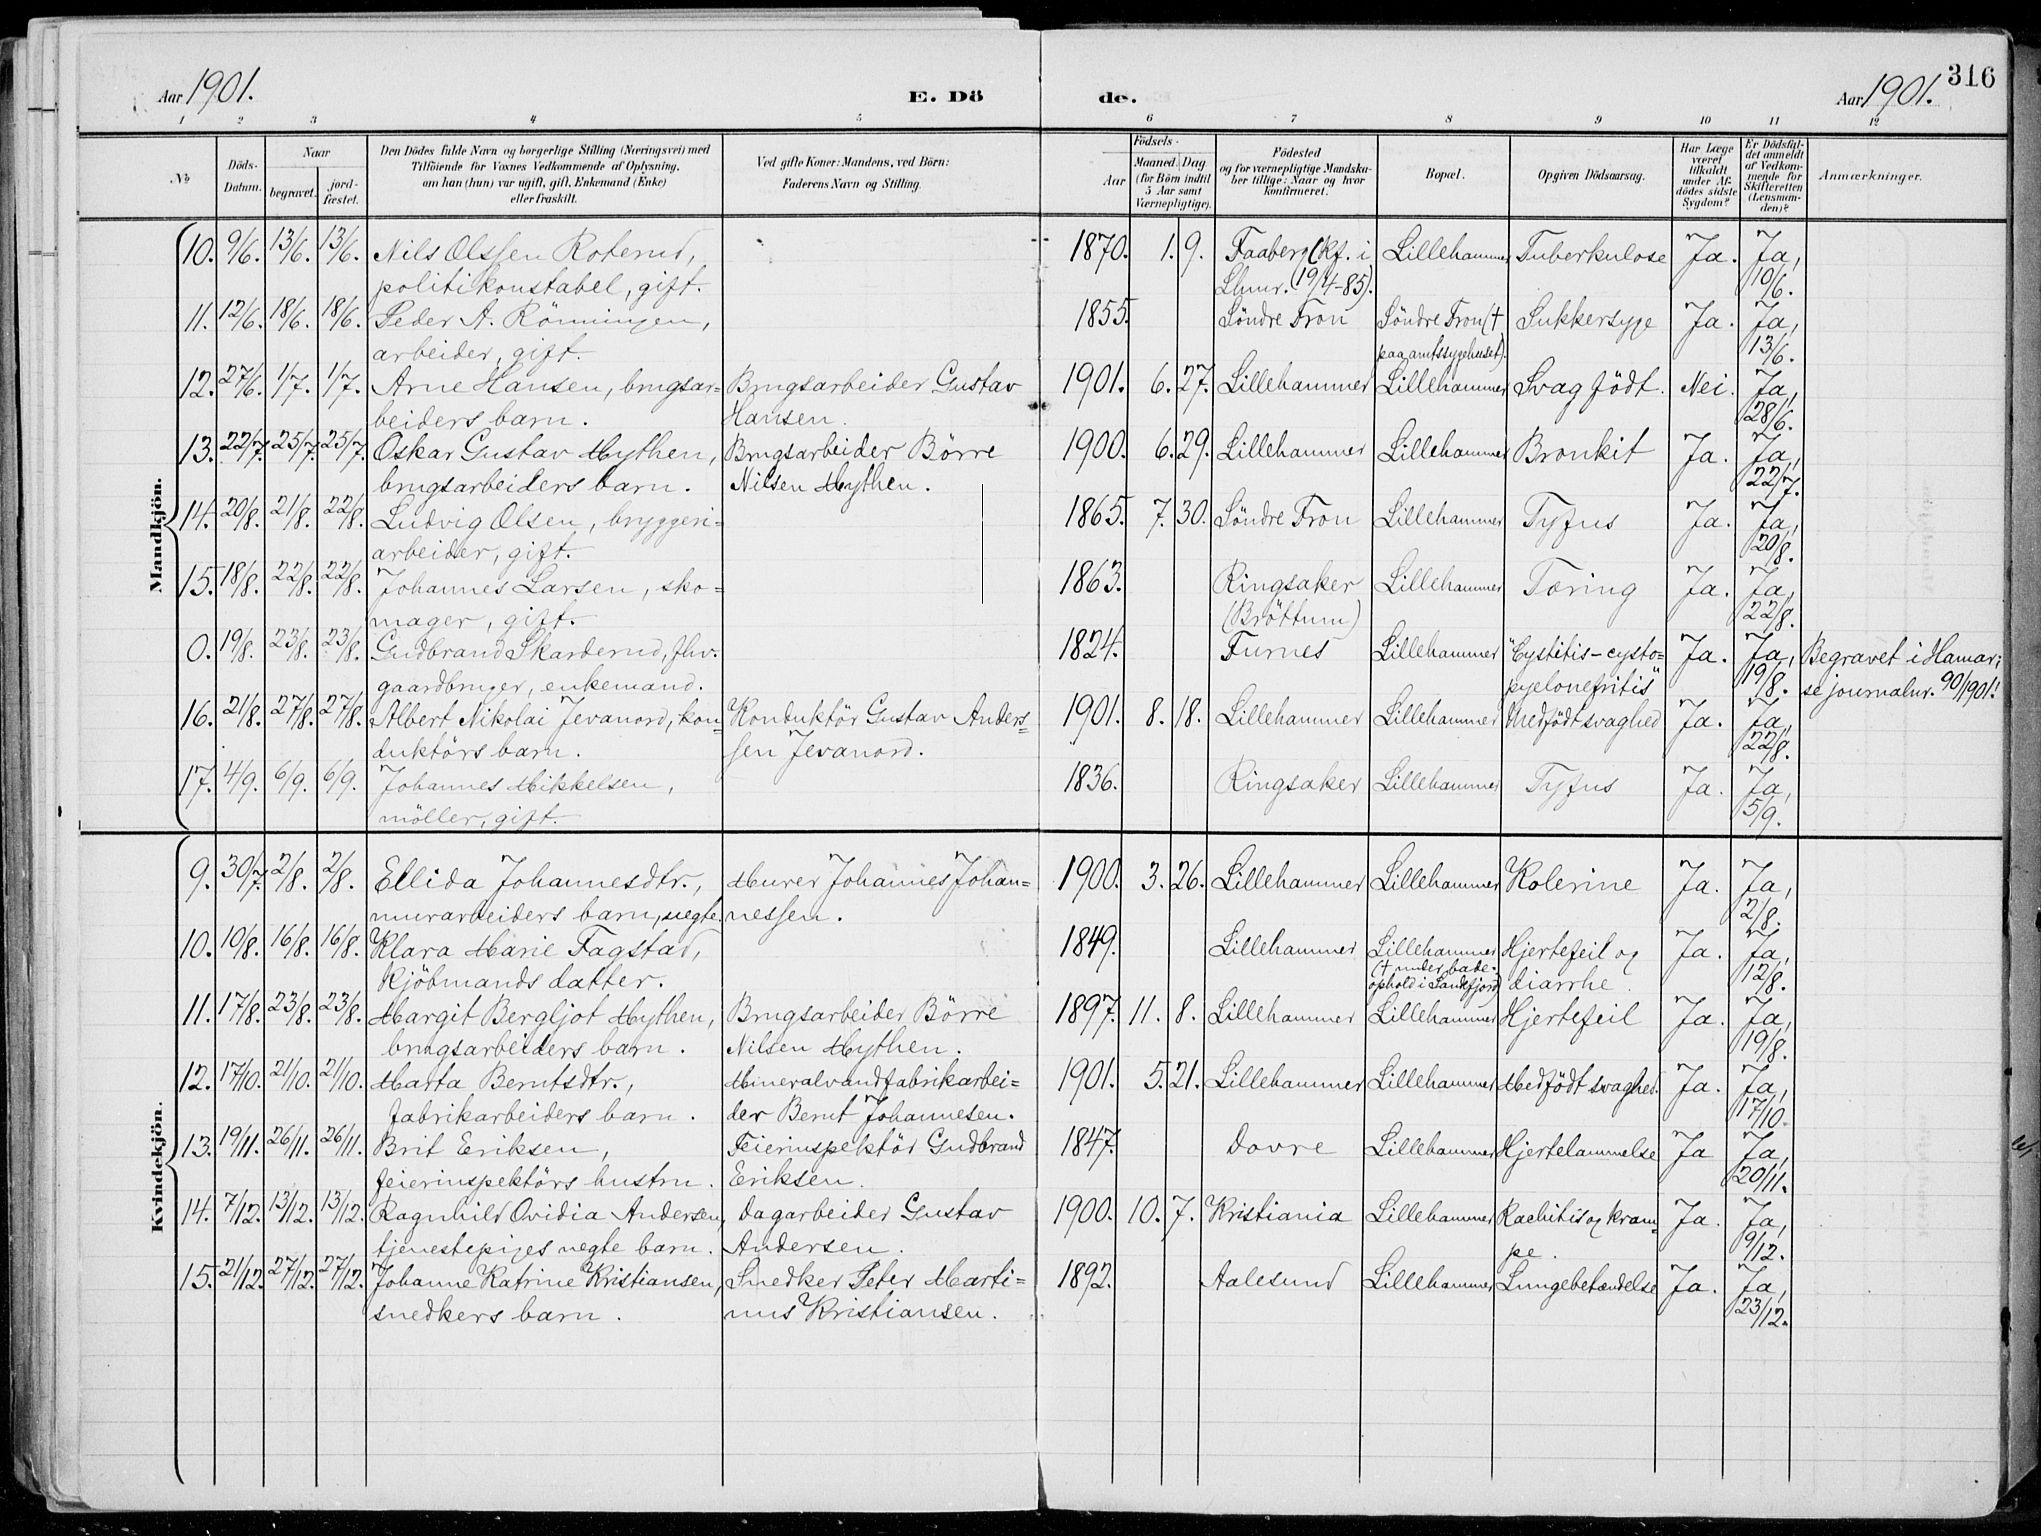 316
Aar 1901.
E. Dö
de.
Aar 1901.
1 2 3 4 5 6 7 8 9 10 11 12
No
Döds-Datum.
Naar
begravet.
jord-fæstet.
Den Dödes fulde Navn og borgerlige Stilling (Næringsvei) med
Tilföiende for Voxnes Vedkommende af Oplysning,
om han (hun) var ugift, gift, Enkemand (Enke)
eller fraskilt.
Ved gifte Koner: Mandens, ved Börn:
Faderens Navn og Stilling.
Födsels-
Aar
Maaned. Dag
(for Börn indtil
5 Aar samt
Værnepligtige).
Födested
og for værnepligtige Mandska-
ber tillige: Naar og hvor
konfirmeret.
Bopæl.
Opgiven Dödsaarsag.
Har Læge
været
tilkaldt
under Af-
dödes sidste
Sygdom?
Er Dödsfal-
det anmeldt
af Vedkom-
mende for
Skifteretten
(Lensman-
den)?
Anmærkninger.
Mandkjön.
10. 9/6. 13/6. 13/6. Nils Olssen Roterud, 1870. 1. 9. Faaberg (kf. i Lillehammer Tuberkulose Ja. Ja,
politikonstabel, gift. Lhmr. 19/4-85). 10/6.
11. 12/6. 18/6. 18/6. Peder A. Rönningen, 1855. Söndre Fron Söndre Fron († Sukkersyge Ja. Ja,
arbeider, gift. paa amtssygehuset). 13/6.
12. 27/6. 1/7. 1/7. Arne Hansen, brugsar= Brugsarbeider Gustav 1901. 6. 27. Lillehammer Lillehammer Svag födt. Nei. Ja,
beiders barn. Hansen. 28/6.
13. 22/7. 25/7. 25/7. Oskar Gustav Mythen, Brugsarbeider Börre 1900. 6. 29. Lillehammer Lillehammer Bronkit Ja. Ja,
brugsarbeiders barn. Nilsen Mythen. 22/7.
14. 20/8. 21/8. 22/8. Ludvig Olsen, bryggeri= 1865. 7. 30. Söndre Fron Lillehammer Tyfus Ja. Ja,
arbeider, gift. 20/8.
15. 18/8. 22/8. 22/8. Johannes Larsen, sko= 1863. Ringsaker Lillehammer Tæring Ja. Ja,
mager, gift. (Bröttum) 22/8.
0. 19/8. 23/8. 23/8. Gudbrand Skarderud, fhv. 1824. Furnes Lillehammer "Cystitis-cysto= Ja. Ja, Begravet i Hamar;
gaardbruger, enkemand. pyelonefritis" 19/8. se journalnr. 90/1901!
16. 21/8. 27/8. 27/8. Albert Nikolai Jevanord, kon= Konduktör Gustav Anders= 1901. 8. 18. Lillehammer Lillehammer Medfödt svaghed Ja. Ja,
duktörs barn. sen Jevanord. 22/8.
17. 4/9. 6/9. 6/9. Johannes Mikkelsen, 1836. Ringsaker Lillehammer Tyfus Ja. Ja,
möller, gift. 5/9.
Kvindekjön.
9. 30/7. 2/8. 2/8. Ellida Johannesdtr., Murer Johannes Johan= 1900. 3. 26. Lillehammer Lillehammer Kolerine Ja. Ja,
murarbeiders barn, uegte. nessen. 2/8.
10. 10/8. 16/8. 16/8. Klara Marie Fagstad, 1849. Lillehammer Lillehammer Hjertefeil og Ja. Ja,
kjöbmands datter. († under bade-
ophold i Sandefjord) diarrhe. 12/8.
11. 17/8. 23/8. 23/8. Margit Bergljot Mythen, Brugsarbeider Börre 1897. 11. 8. Lillehammer Lillehammer Hjertefeil Ja. Ja,
brugsarbeiders barn. Nilsen Mythen. 19/8.
12. 17/10. 21/10. 21/10. Marta Berntsdtr., Mineralvandfabrikarbei= 1901. 5. 21. Lillehammer Lillehammer Medfödt svaghed. Ja. Ja,
fabrikarbeiders barn. der Bernt Johannesen. 17/10.
13. 19/11. 26/11. 26/11. Brit Eriksen, Feierinspektör Gudbrand 1847. Dovre Lillehammer Hjertelammelse Ja Ja,
feierinspektörs hustru. Eriksen. 20/11.
14. 7/12. 13/12. 13/12. Ragnhild Ovidia Andersen, Dagarbeider Gustav 1900. 10. 7. Kristiania Lillehammer Rachitis og kram= Ja. Ja,
tjenestepiges uegte barn. Andersen. pe. 9/12.
15. 21/12. 27/12. 27/12. Johanne Katrine Kristiansen, Snedker Peter Marti= 1892. Aalesund Lillehammer Lungebetændelse Ja. Ja,
snedkers barn. nus Kristiansen. 23/12.